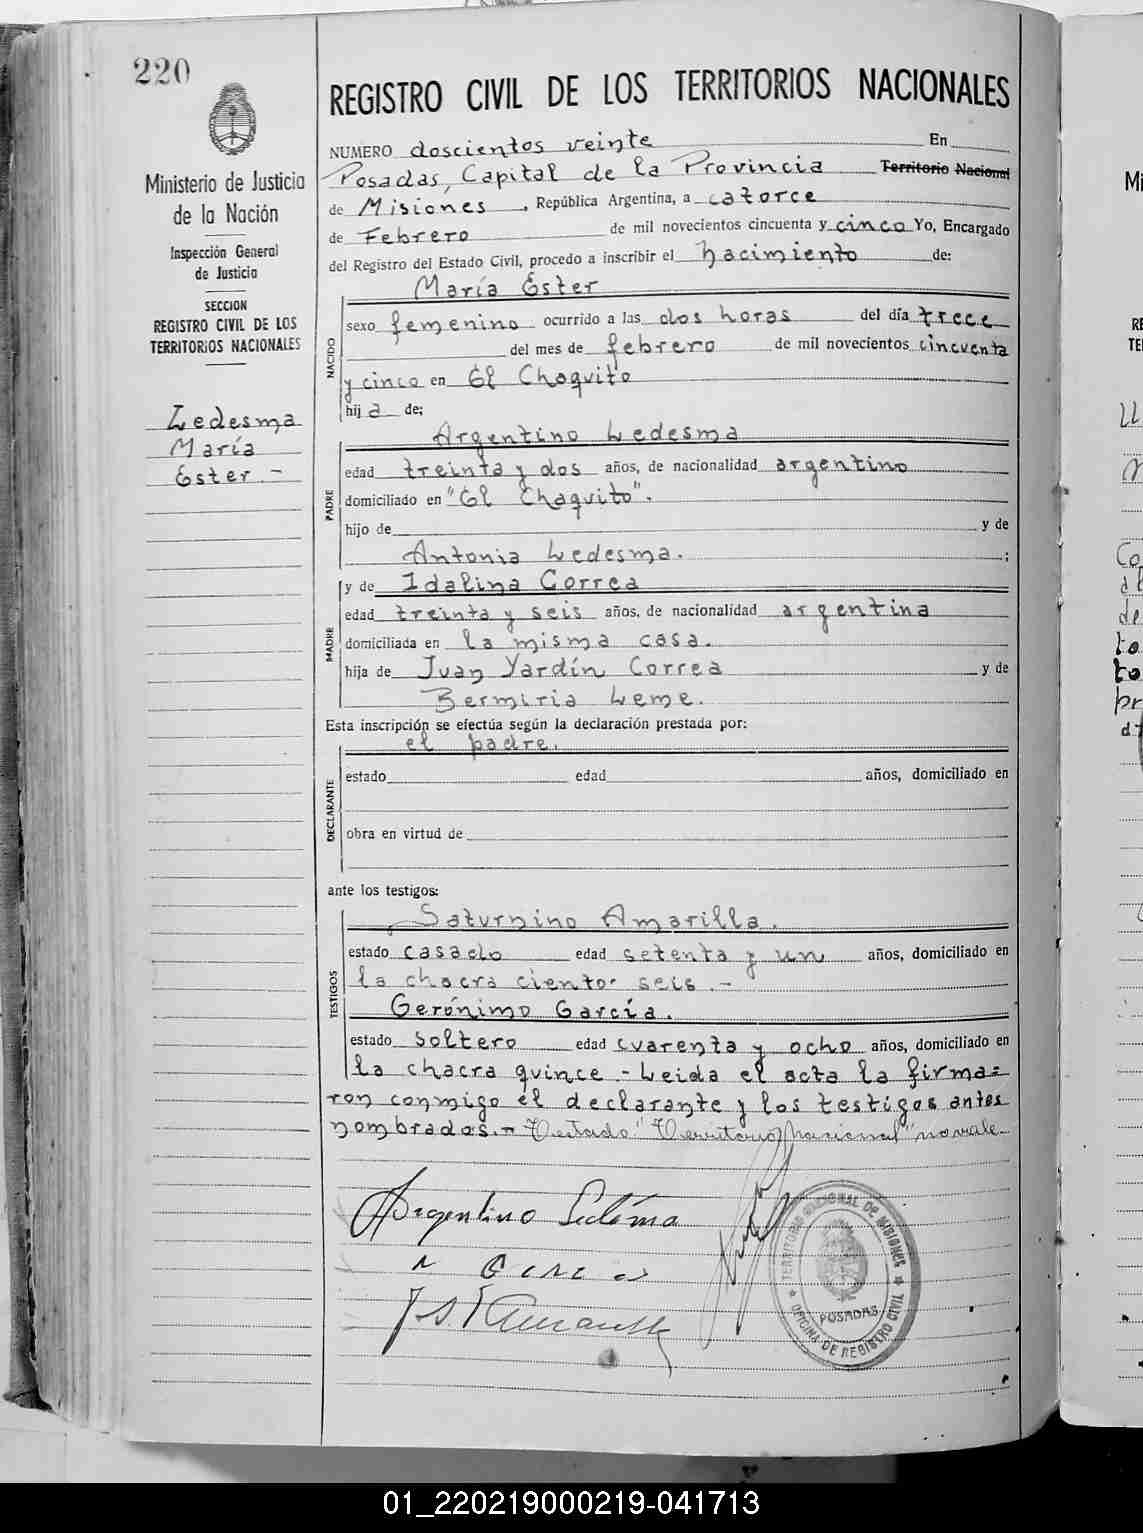 220
Ministerio de Justicia
de la Nación
Inspección General
de Justicia
SECCION
REGISTRO CIVIL DE LOS
TERRITORIOS NACIONALES
Ledesma
María
Ester.-
REGISTRO CIVIL DE LOS TERRITORIOS NACIONALES
NUMERO doscientos veinte En
Posadas, Capital de la Provincia Territorio Nacional
de Misiones, República Argentina, a catorce
de Febrero de mil novecientos cincuenta y cinco Yo, Encargado
del Registro del Estado Civil, procedo a inscribir el nacimiento de:
María Ester
NACIDO
sexo femenino ocurrido a las dos horas del día trece
del mes de febrero de mil novecientos cincuenta
y cinco en El Chaquito
hija de:
Argentino Ledesma
PADRE
edad treinta y dos años, de nacionalidad argentino
domiciliado en "El Chaquito".
hijo de y de
Antonia Ledesma. ;
y de Idalina Correa
MADRE
edad treinta y seis años, de nacionalidad argentina
domiciliada en la misma casa.
hija de Juan Yardín Correa y de
Bermiria Leme.
Esta inscripción se efectúa según la declaración prestada por:
el padre.
DECLARANTE
estado edad años, domiciliado en
obra en virtud de
ante los testigos:
Saturnino Amarilla.
TESTIGOS
estado casado edad setenta y un años, domiciliado en
la chacra ciento seis.-
Gerónimo García.
estado soltero edad cuarenta y ocho años, domiciliado en
la chacra quince.- Leída el acta la firma=
ron conmigo el declarante y los testigos antes
nombrados.= Testado: "Territorio Nacional" no vale.
Argentino Ledesma
TERRITORIO NACIONAL DE MISIONES
POSADAS
OFICINA DE REGISTRO CIVIL
01_220219000219-041713